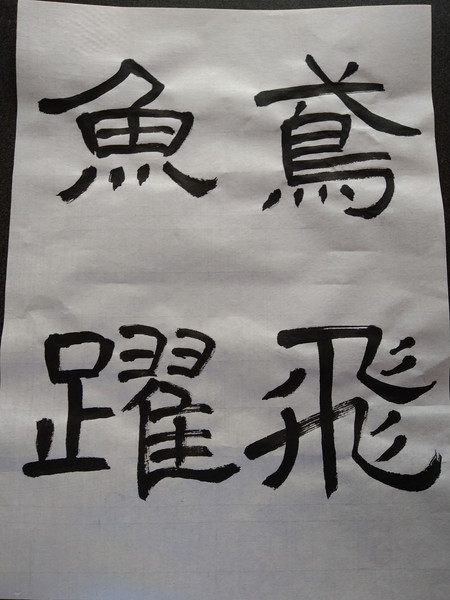 鳶飛
魚躍